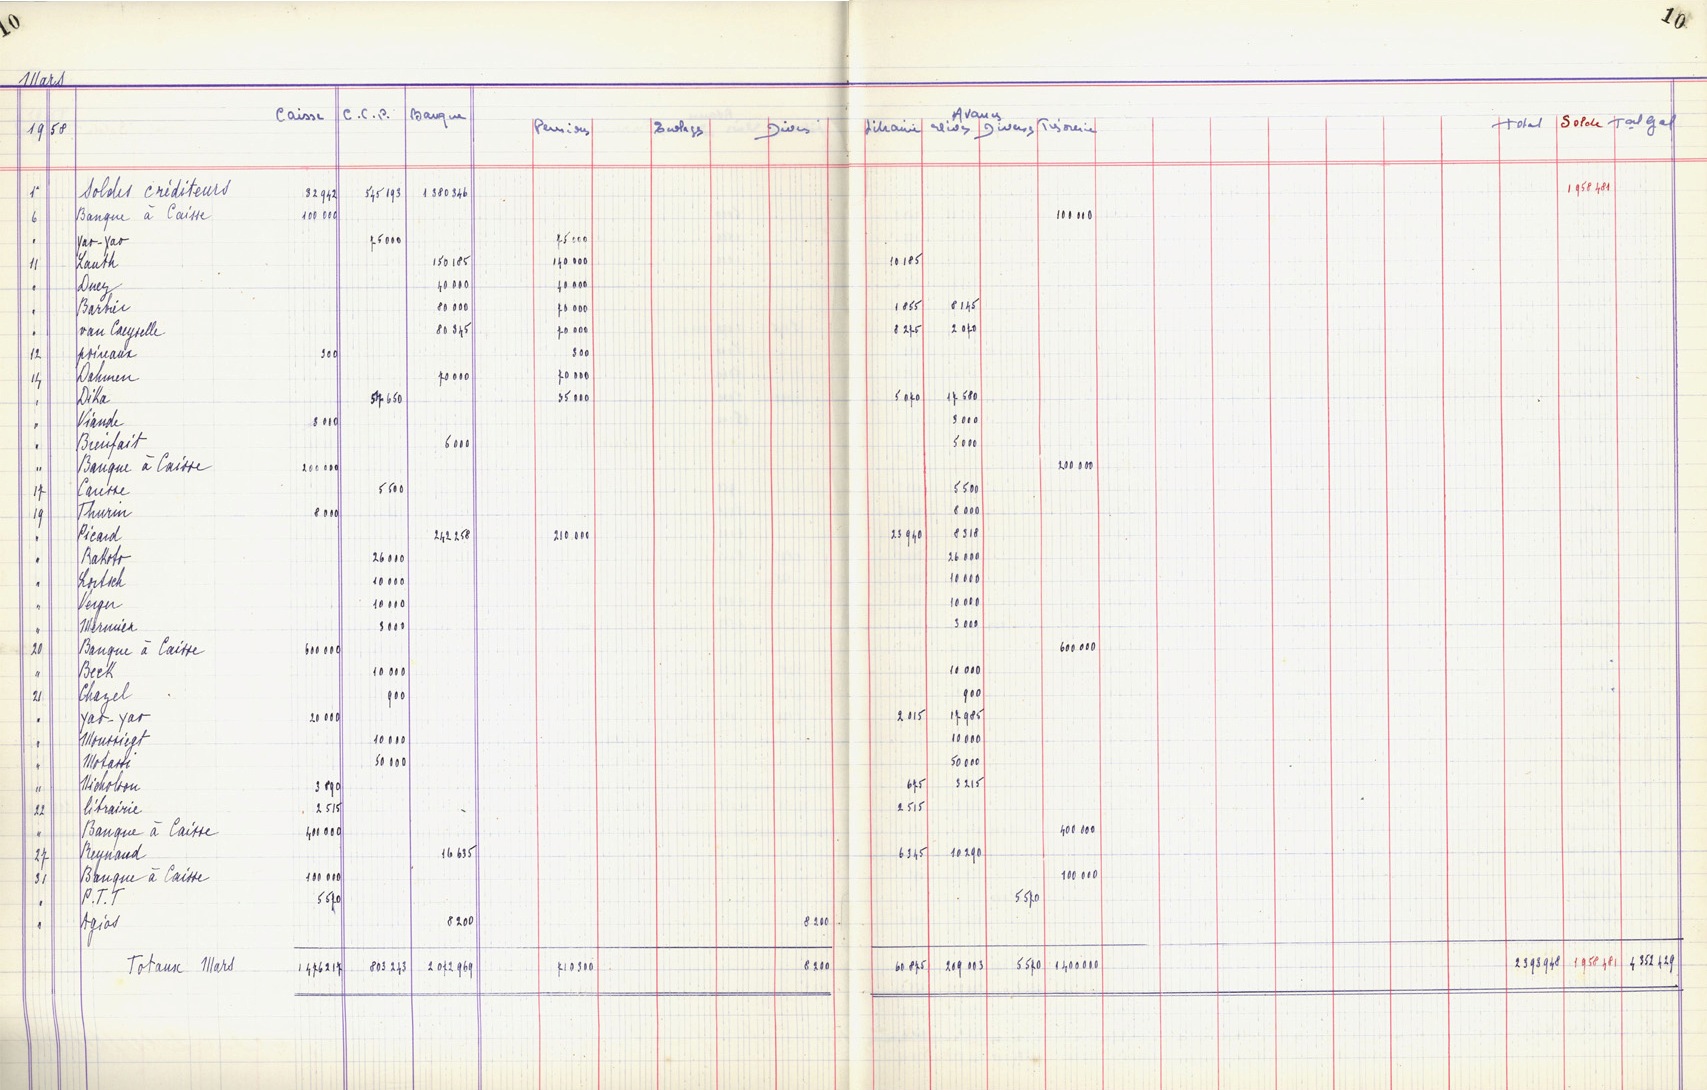 10 10
Mars
1958 Caisse C.C.P. Banque Pensions Ecolage Divers Librairie Avances élèves Divers Trésorerie Total Solde Total Gal
1er Soldes créditeurs 32 942 545 193 1 380 346 1 958 481
6 Banque à Caisse 100 000 100 000
" Yao-Yao 75 000 75 000
11 Lauth 150 185 140 000 10 185
" Duez 40 000 40 000
" Barbier 80 000 70 000 1 855 8 145
" van Caeyselle 80 345 70 000 8 275 2 070
12 poireaux 300 300
14 Dahmen 70 000 70 000
" Dika 57 650 35 000 5 070 17 580
" Viande 3 000 3 000
" Bienfait 6 000 5 000
" Banque à Caisse 200 000 200 000
17 Causse 5 500 5 500
19 Thurin 8 000 8 000
" Picard 242 258 210 000 23 940 8 318
" Rakoto 26 000 26 000
" Lortsch 10 000 10 000
" Verger 10 000 10 000
" Mermier 3 000 3 000
20 Banque à Caisse 600 000 600 000
" Beck 10 000 10 000
21 Chazel 900 900
" Yao-Yao 20 000 2 015 17 985
" Moussiegt 10 000 10 000
" Motassi 50 000 50 000
" Nicholson 3 890 675 3 215
22 librairie 2 515 2 515
" Banque à Caisse 400 000 400 000
27 Reynaud 16 635 6 345 10 290
31 Banque à Caisse 100 000 100 000
" P.T.T 5 570 5 570
" Agios 8 200 8 200
Totaux Mars 1 476 217 803 243 2 072 969 710 300 8 200 60 875 209 003 5 570 1 400 000 2 393 948 1 958 481 4 352 429